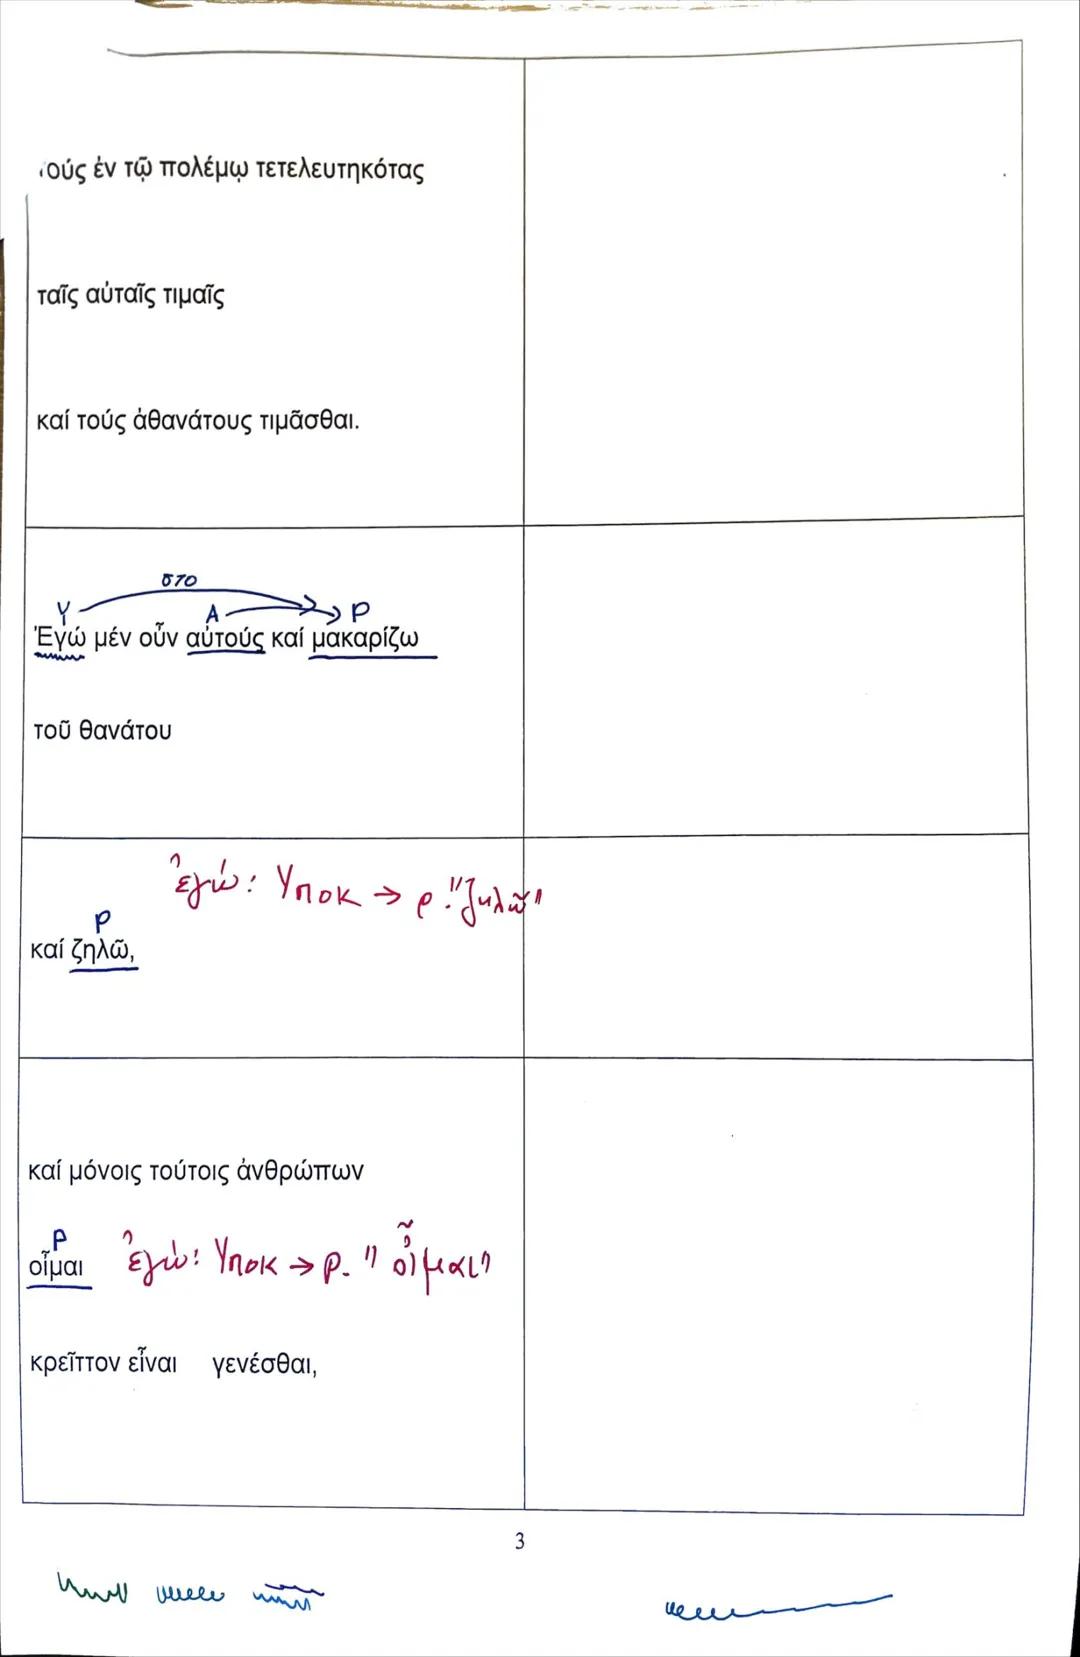 τούς ἐν τῷ πολέμῳ τετελευτηκότας
ταῖς αὐταῖς τιμαῖς
καί τούς ἀθανάτους τιμᾶσθαι.
στο
Υ Α Ρ
Ἐγώ μέν οὖν αὐτούς καί μακαρίζω
τοῦ θανάτου
ἐγώ: Υποκ → ρ. "ζηλῶ"
Ρ
καί ζηλῶ,
καί μόνοις τούτοις ἀνθρώπων
Ρ
οἶμαι ἐγώ: Υποκ → ρ. "οἶμαι"
κρεῖττον εἶναι γενέσθαι,
3